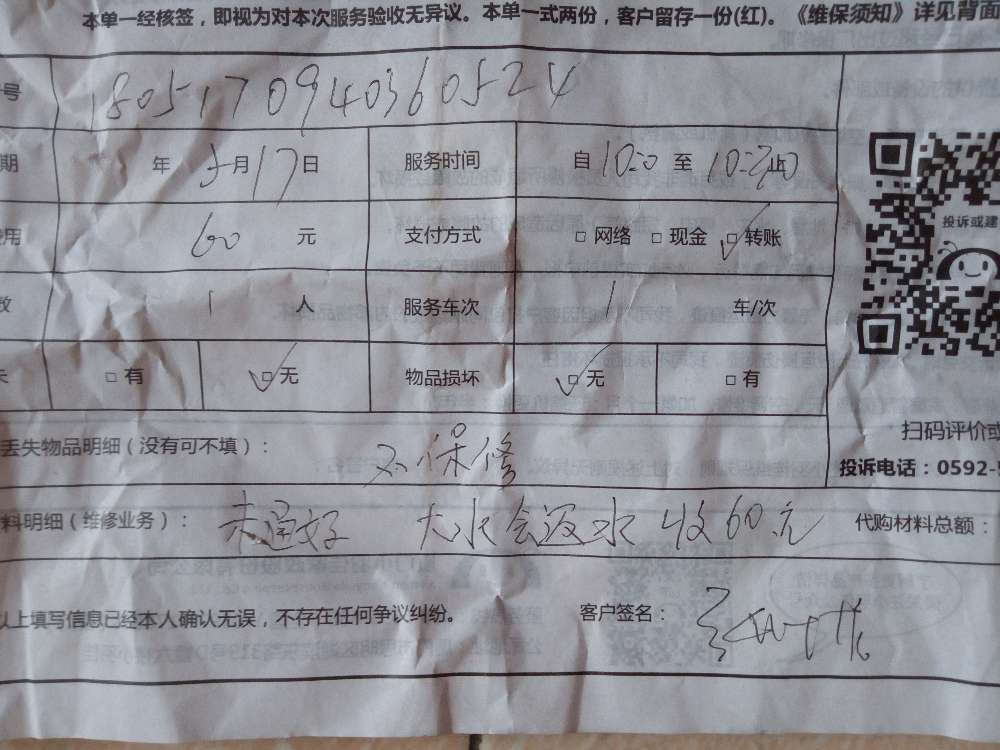 本单一经核签，即视为对本次服务验收无异议。本单一式两份，客户留存一份(红)。《维保须知》详见背面
号 180517094036052４
期 年 5月17日 服务时间 自 10:20 至 止
用 60 元 支付方式 □ 网络 □ 现金 □ 转账
数 1 人 服务车次 1 车/次
失 □ 有 □ 无 物品损坏 □ 无 □ 有
投诉或建
扫码评价或
丢失物品明细（没有可不填）： 不保修
投诉电话：0592-
料明细（维修业务）： 未通好 大水会返水 收60元 代购材料总额：
以上填写信息已经本人确认无误，不存在任何争议纠纷。 客户签名：